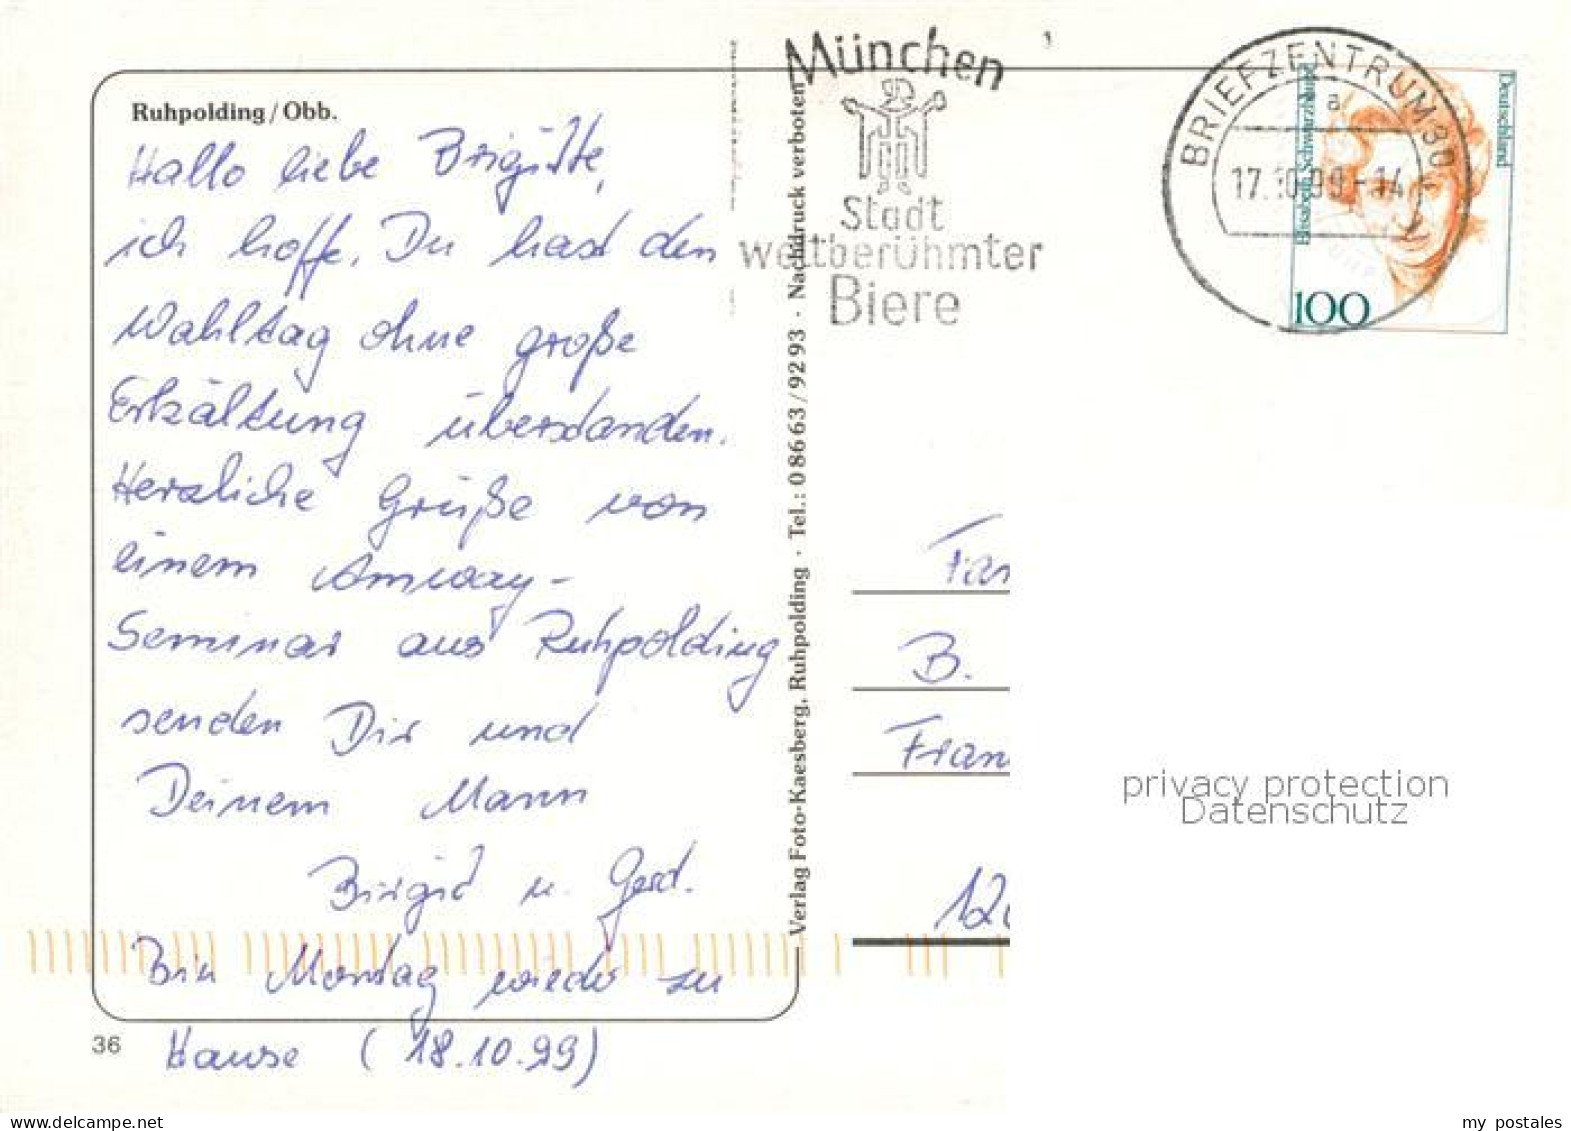 Ruhpolding / Obb.
Hallo liebe Brigitte,
ich hoffe, Du hast den
Wahltag ohne große
Erkältung überstanden.
Herzliche Grüße von
einem Amway-
Seminar aus Ruhpolding
senden Dir und
Deinem Mann
Birgit u. Gerd.
Bin Montag wieder zu
Hause (18.10.99)
36
Verlag Foto-Kaesberg, Ruhpolding · Tel.: 0 86 63 / 92 93 · Nachdruck verboten
München
Stadt
weltberühmter
Biere
BRIEFZENTRUM 80
a
17.10.99-14
Deutschland
Elisabeth Schwarzhaupt
100
Fam
B.
Fran
12
privacy protection
Datenschutz
my postales